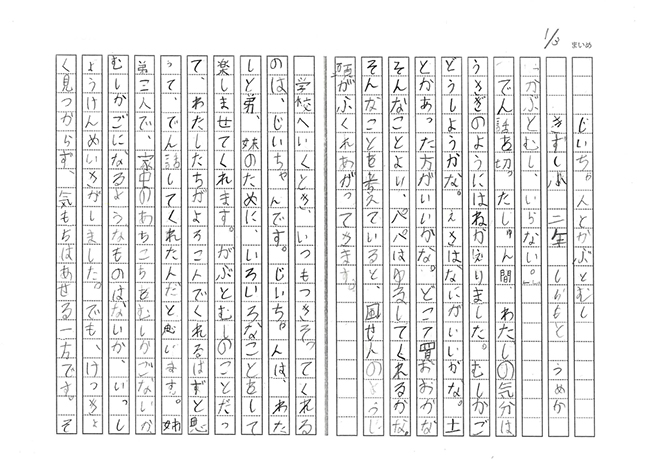 1/3
まいめ
じいちゃんとかぶとむし
きずしぶ二年 しかもと うめか
「かぶとむし、いらない。」
でん話を切ったしゅん間、わたしの気分は
うさぎのようにはねかえりました。むしかご
どうしようかな。えさはなにがいいかな。土
とかあった方がいいかな。どこで買おおかな
そんなことより、ぺぺはゆるしてくれるかな。
そんなことを考えていると、風せん人のように
頭がふくれあがってきます。
学校へいくとき、いつもつきそってくれる
のは、じいちゃんです。じいちゃんは、わた
しと弟、妹のために、いろいろなことをして
楽しませてくれます。かぶとむしのことだっ
て、わたしたちがよろこんでくれるはずと思
って、でん話してくれた人だと思います。姉
弟三人で、家中のあちこちをむしかごないか
むしかごになるようなものはないか、いっし
ょうけんめいさがしました。でも、けっきょ
く見つからず、気もちはあせる一方です。そ